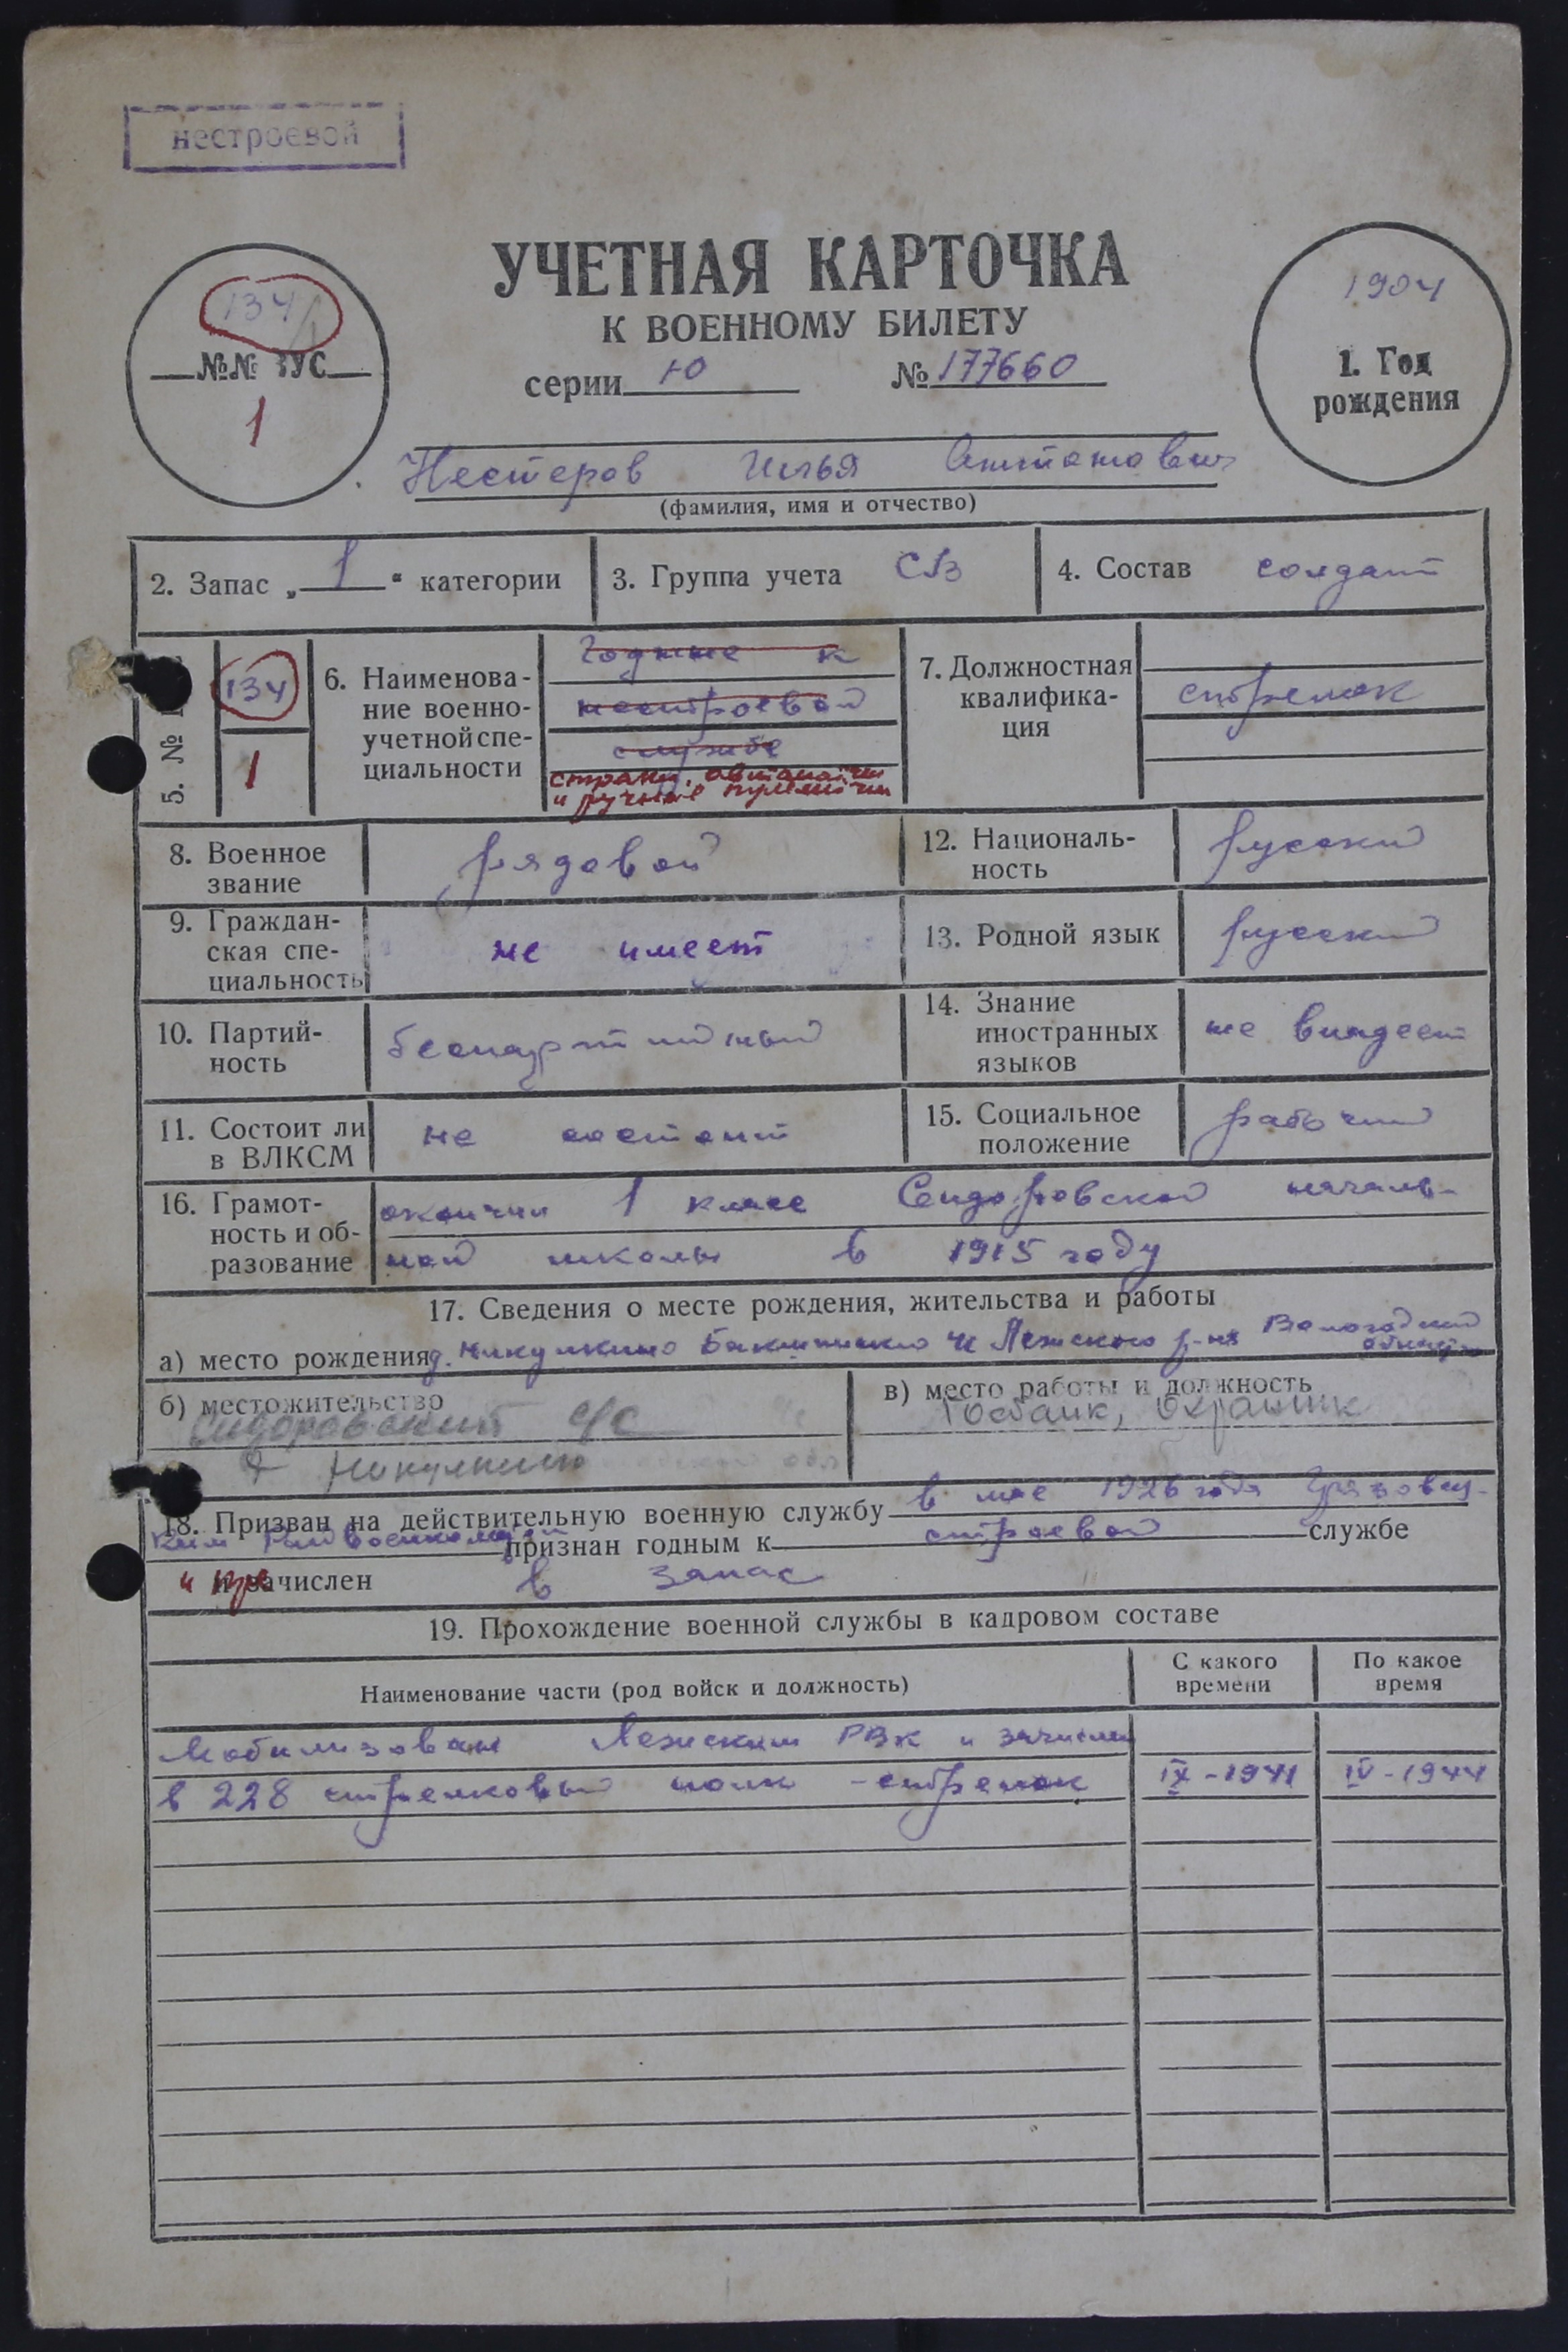 нестроевой
УЧЕТНАЯ КАРТОЧКА
К ВОЕННОМУ БИЛЕТУ
серии Ю № 177660
134/1
№№ ВУС
1
1904
1. Год
рождения
Нестеров Илья
(фамилия, имя и отчество)
2. Запас „ 1 “ категории
3. Группа учета
4. Состав солдат
5. №
134
1
6. Наименова-
ние военно-
учетной спе-
циальности
Годные к
нестроевой
службе
стрелки, автоматчики
и ручные пулеметчики
7. Должностная
квалифика-
ция
стрелок
8. Военное
звание
рядовой
12. Националь-
ность
русский
9. Граждан-
ская спе-
циальность
не имеет
13. Родной язык
русский
10. Партий-
ность
беспартийный
14. Знание
иностранных
языков
не владеет
11. Состоит ли
в ВЛКСМ
не состоит
15. Социальное
положение
рабочий
16. Грамот-
ность и об-
разование
окончил 1 класс Сидоровской началь-
ной школы в 1915 году
17. Сведения о месте рождения, жительства и работы
а) место рождения д. Никулкино Лежского р-на Вологодской
области
б) местожительство
Сидоровский с/с
д Никулкино
в) место работы и должность
Госбанк, охранник
18. Призван на действительную военную службу в мае 1926 года Грязовец-
ким Райвоенкоматом признан годным к строевой службе
и зачислен в запас
19. Прохождение военной службы в кадровом составе
Наименование части (род войск и должность)
С какого
времени
По какое
время
Мобилизован Лежским РВК и зачислен
в 228 стрелковый полк - стрелок IX - 1941 IV - 1944